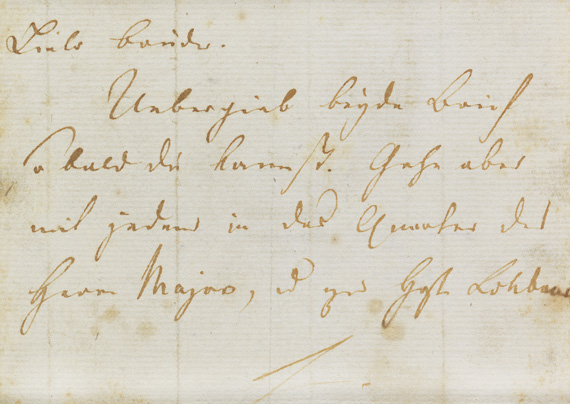 Lieber bruder.
Uebergieb beyde Brief
sobald du kannst. Gehe aber
mit jedem in das Quartier des
Herrn Major, u zu